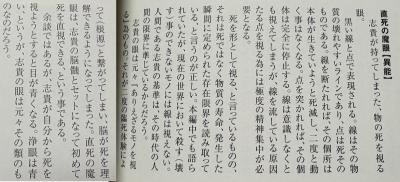 直死の魔眼【異能】
志貴が持ってしまった、物の死を視る
魔眼。
黒い線と点で表現される。線はその物
質の壊れやすいラインであり、点は死その
ものである。線を断たれば、その個所は
本体が生きていようと死滅し、二度と動
く事はなくなる。点を突かれれば、その個
体は完全に停止する。線は意識しなくと
も視えてしまうが、線を流している原因
たる点を視る為には極度の精神集中が必
要となる。
死を形として視る、と言っているものの、
それは死ではなく物質の寿命、発生した
瞬間に定められた存在限界を読み取って
いる、と言うのが正しい。本編中でも語ら
れているが、現在の世界において殺す(壊
す)事のできないモノの線は視えない。
人間である志貴の基準は、その時代の人
間の限界に準じているからだろう。
志貴の眼は元々『ありえざるモノを視
る』為の、それが二度の臨死体験によ
って(根源)と繋がってしまい、脳が死を理
解できるようになってしまった。直死の魔
眼は、志貴の脳髄とセットになって初めて
死を直視できる、という事である。
余談ではあるが、志貴が自分から死を
視ようとすると目が青くなる。浄眼は青
い、というが、志貴の眼は元々、その類のも
のなのだろう。